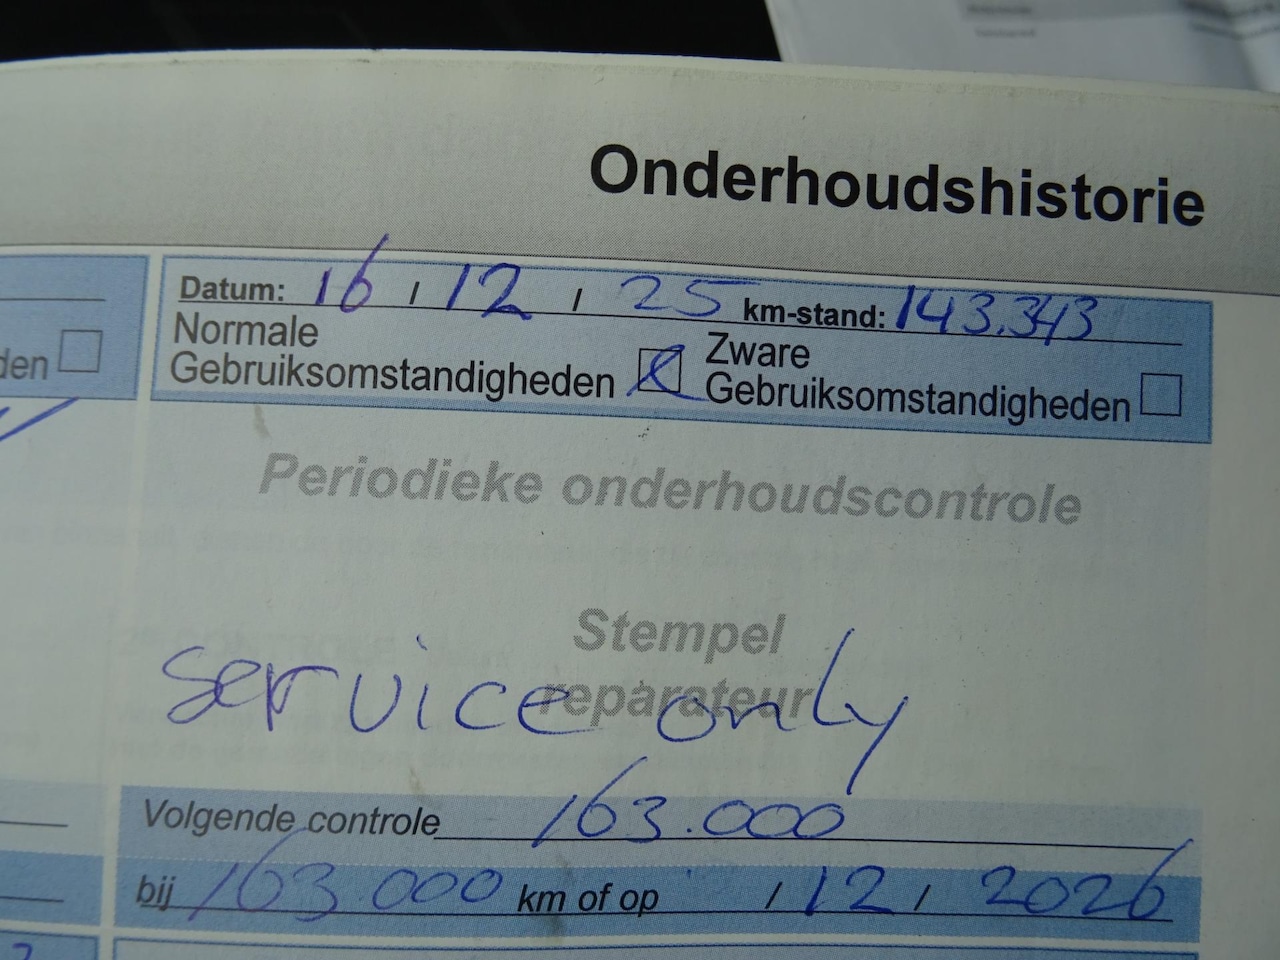 Onderhoudshistorie
Datum: 16 / 12 / 25 km-stand: 143.343
Normale Gebruiksomstandigheden
Zware Gebruiksomstandigheden
den
Periodieke onderhoudscontrole
Stempel
reparateur
service only
Volgende controle 163.000
bij 163.000 km of op / 12 / 2026